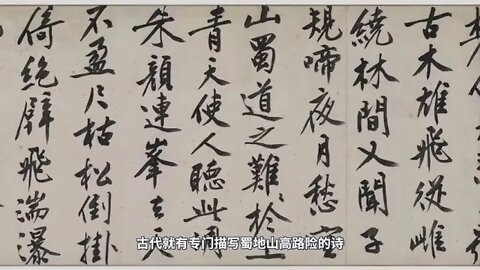 古木雄飛從雌
繞林間又聞子
規啼夜月愁空
山蜀道之難〻於
青天使人聽此凋
朱顏連峯去天
不盈尺枯松倒掛
倚絶壁飛湍瀑
古代就有专门描写蜀地山高路险的诗